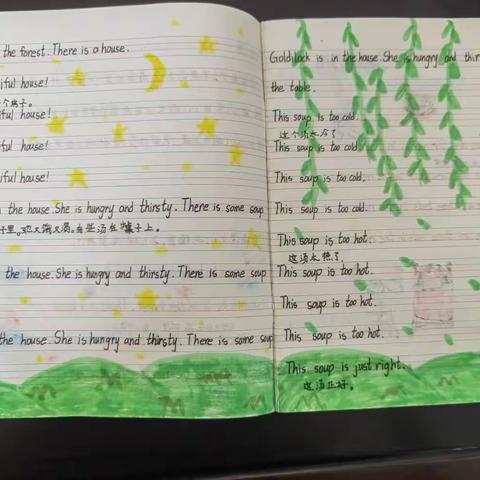 the forest. There is a house.
iful house!
个房子。
iful house!
iful house!
iful house!
the house. She is hungry and thirsty. There is some soup
子里。她又饿又渴。有些汤在桌子上。
the house. She is hungry and thirsty. There is some soup
the house. She is hungry and thirsty. There is some soup
Goldilock is in the house. She is hungry and thir
the table.
This soup is too cold.
这个汤太冷了
This soup is too cold.
This soup is too cold.
This soup is too cold.
This soup is too hot.
这汤太热了
This soup is too hot.
This soup is too hot.
This soup is too hot.
This soup is just right.
这汤正好。